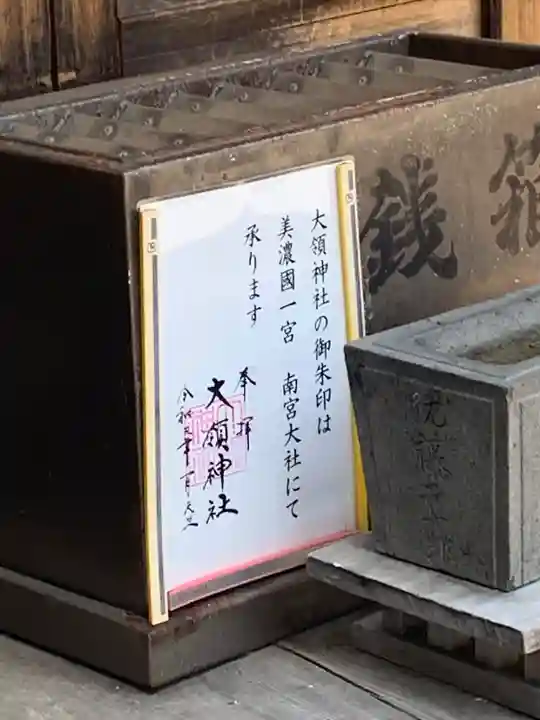 大領神社の御朱印は
美濃國一宮　南宮大社にて
承ります
奉拝
大領神社
銭箱